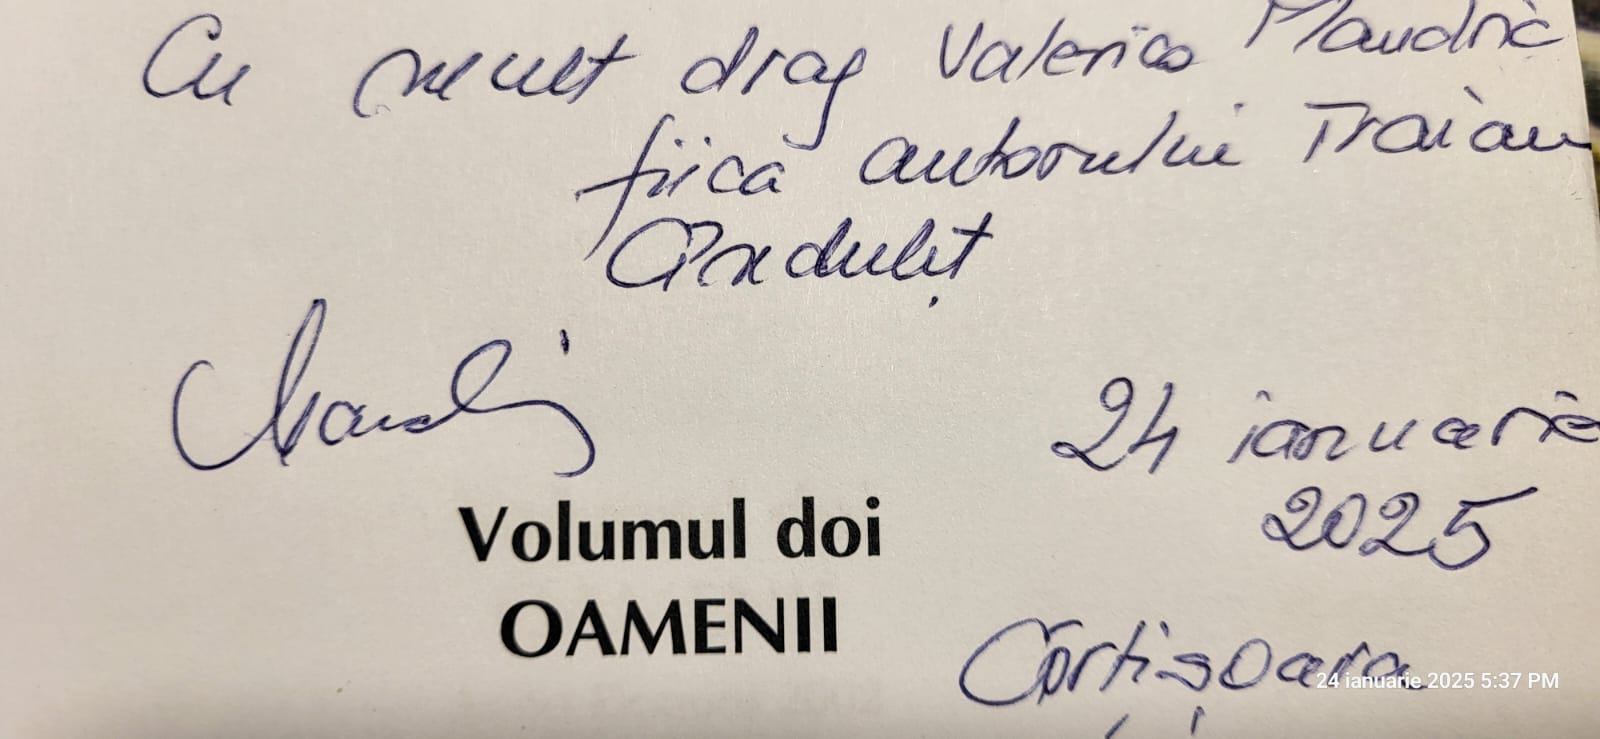 Cu mult drag Valerica Mandric
fiică autorului Traian
Cânduleț
24 ianuarie
2025
Volumul doi
OAMENII
Cârțișoara
24 ianuarie 2025 5:37 PM